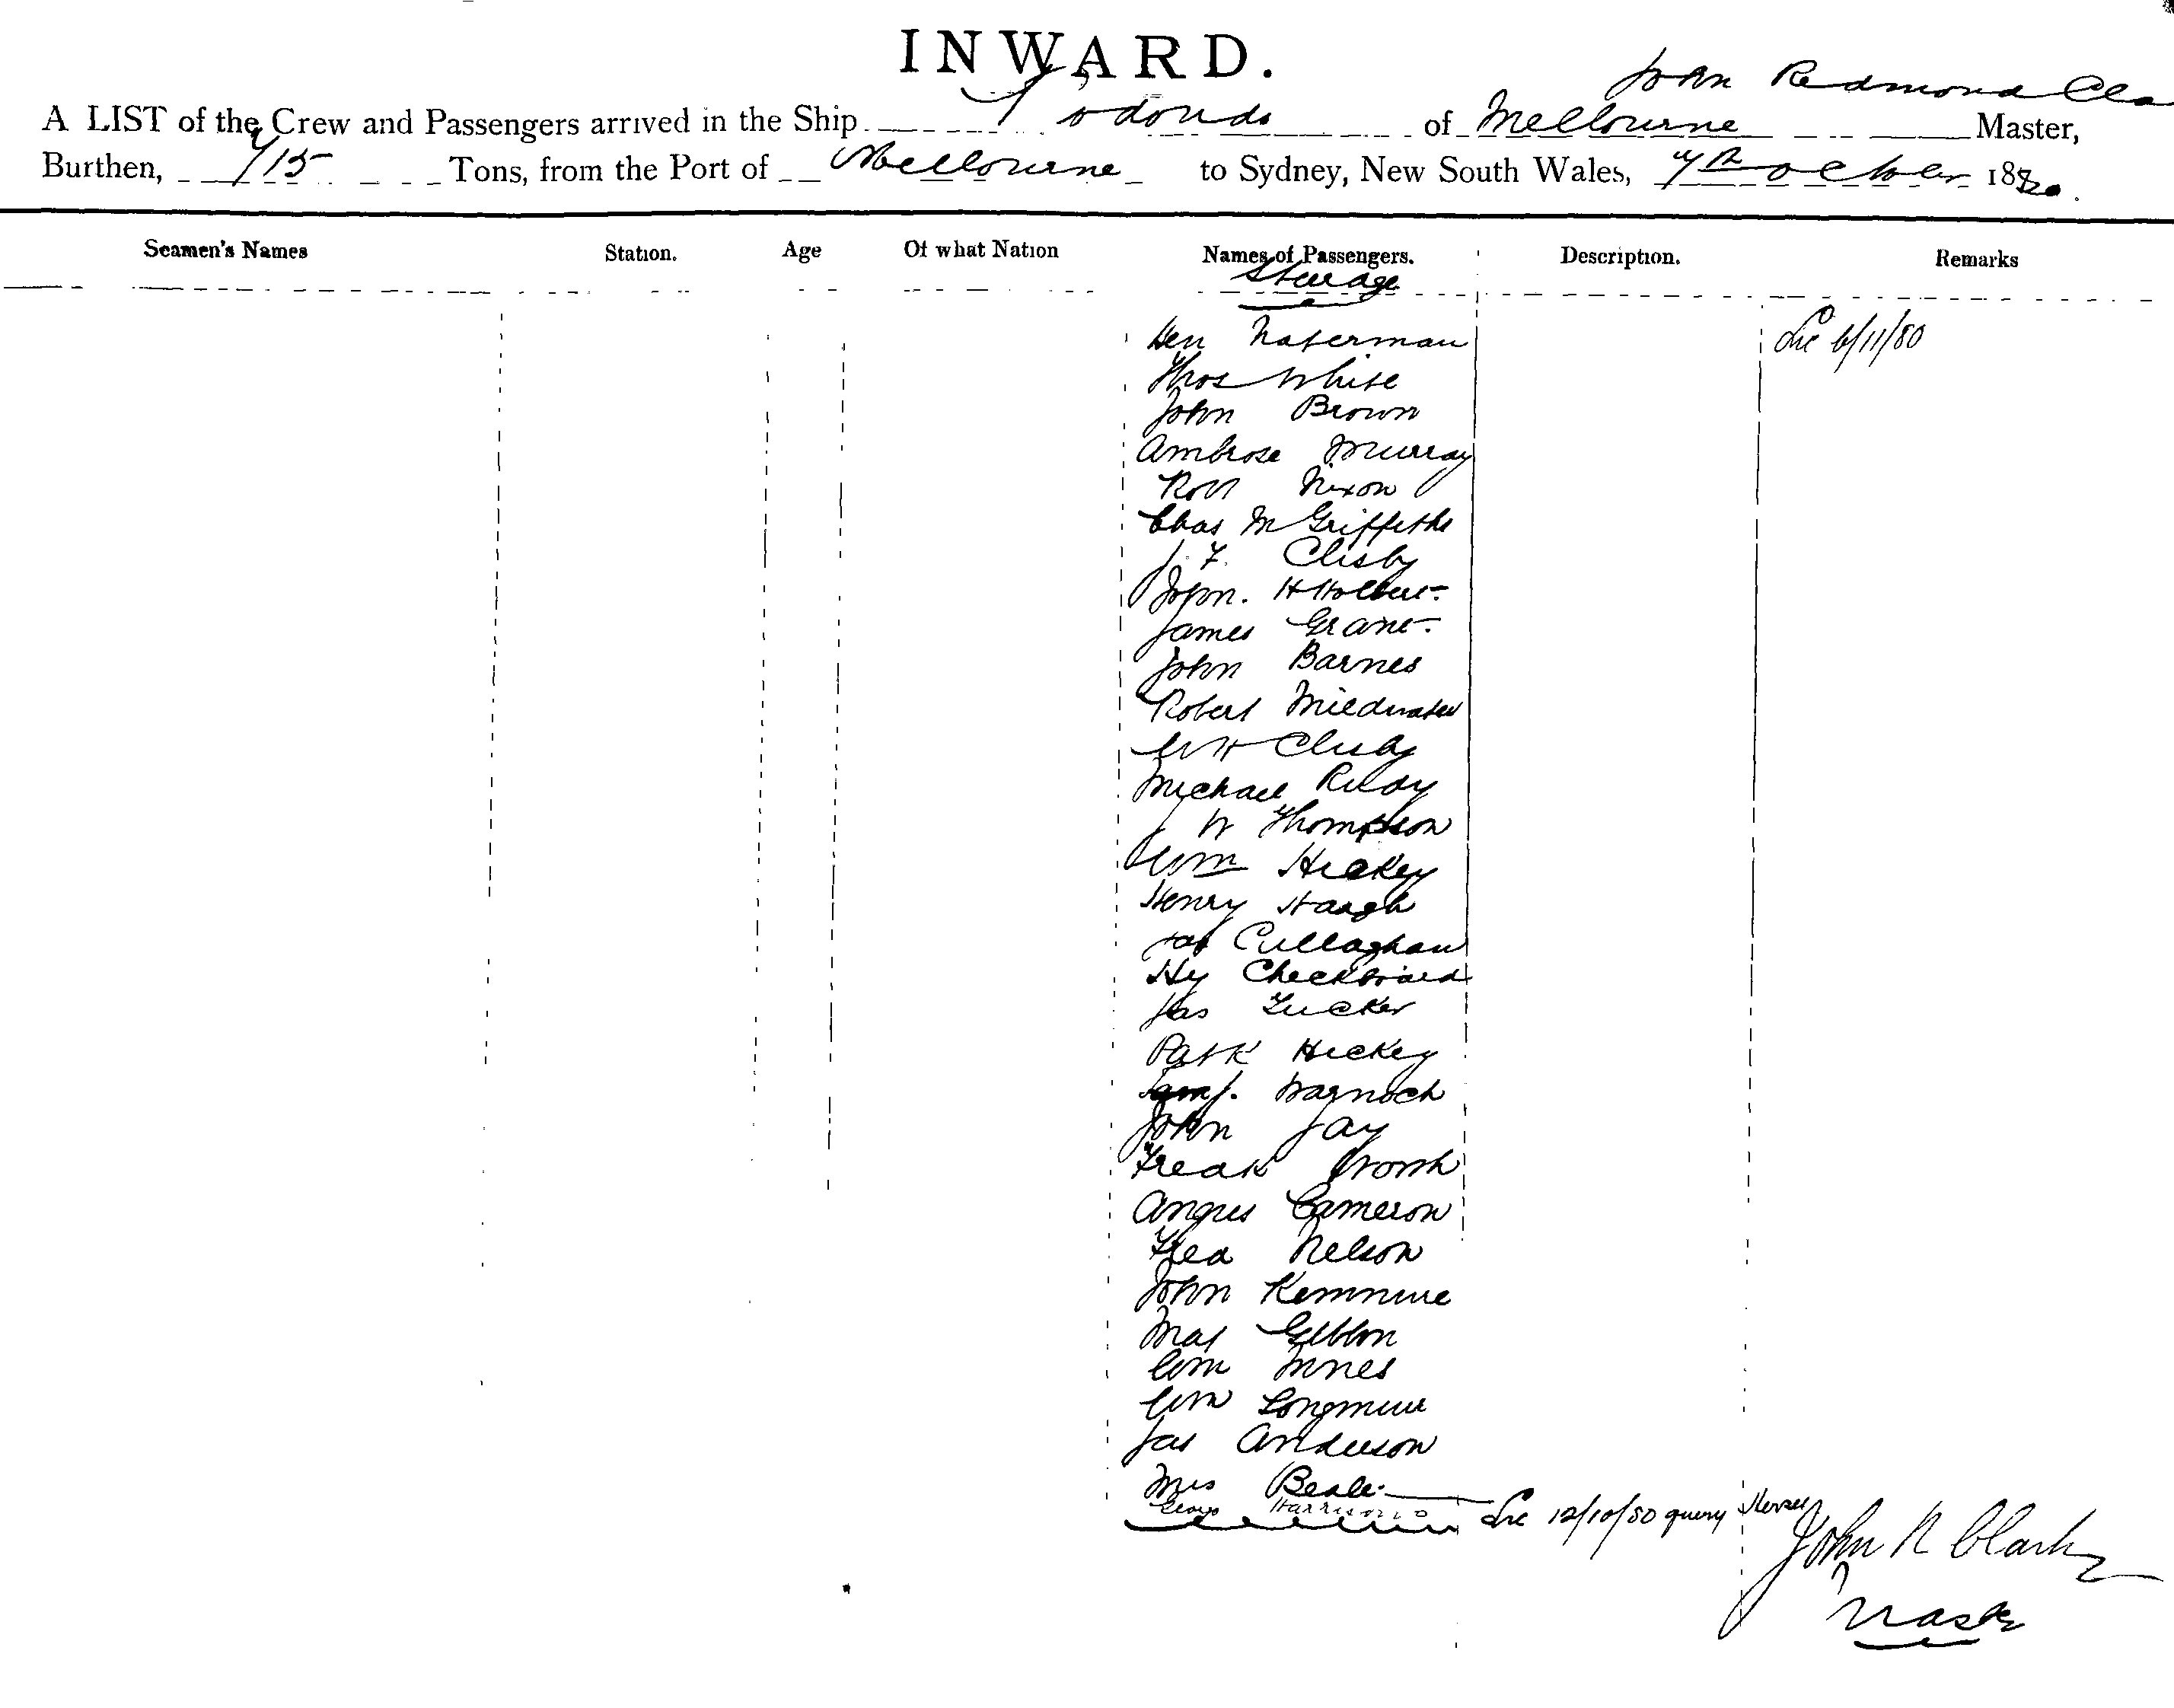 INWARD.
John Redmond Cla
A LIST of the Crew and Passengers arrived in the Ship of Melbourne Master,
Burthen, 715 Tons, from the Port of Melbourne to Sydney, New South Wales, 7th October 1880.
Seamen's Names Station. Age Of what Nation Names of Passengers. Description. Remarks
Steerage
Hen Naterman
Thos White
John Brown
Ambrose Murray
Robt Nixon
Chas M Griffiths
J. F. Clisby
John. H
James Grant.
John Barnes
Robert Mildwater
W H Clisby
Michael
J W Thompson
Wm Hickey
Henry Haugh
Jas Cullaghan
Hy
Jas Tucker
Patk Hickey
John Jay
Angus Cameron
Fred Nelson
John
Gibbon
Wm Innes
Wm Longmuir
Jas Anderson
Mrs Beale.
George Harrison
6/11/80
12/10/80 query
John R Clark